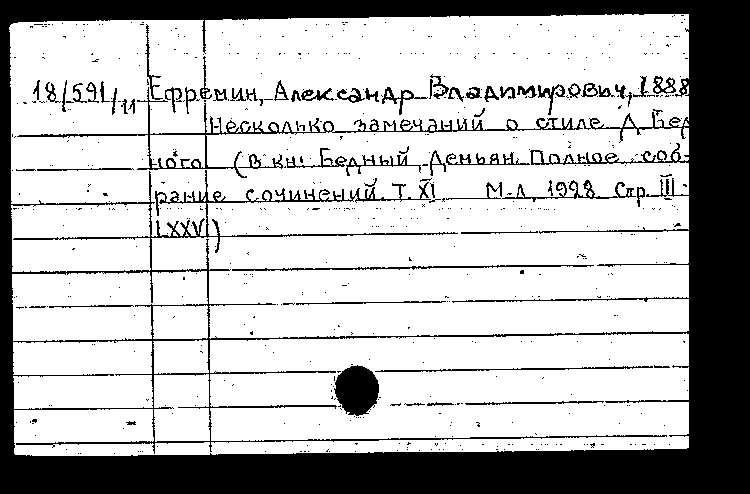 18/591/11 Ефремин, Александр Владимирович, 1888
Несколько замечаний о стиле Д. Бед-
ного (В кн: Бедный, Демьян. Полное соб-
рание сочинений. Т. XI М-Л, 1928 Стр. III-
LXXV)